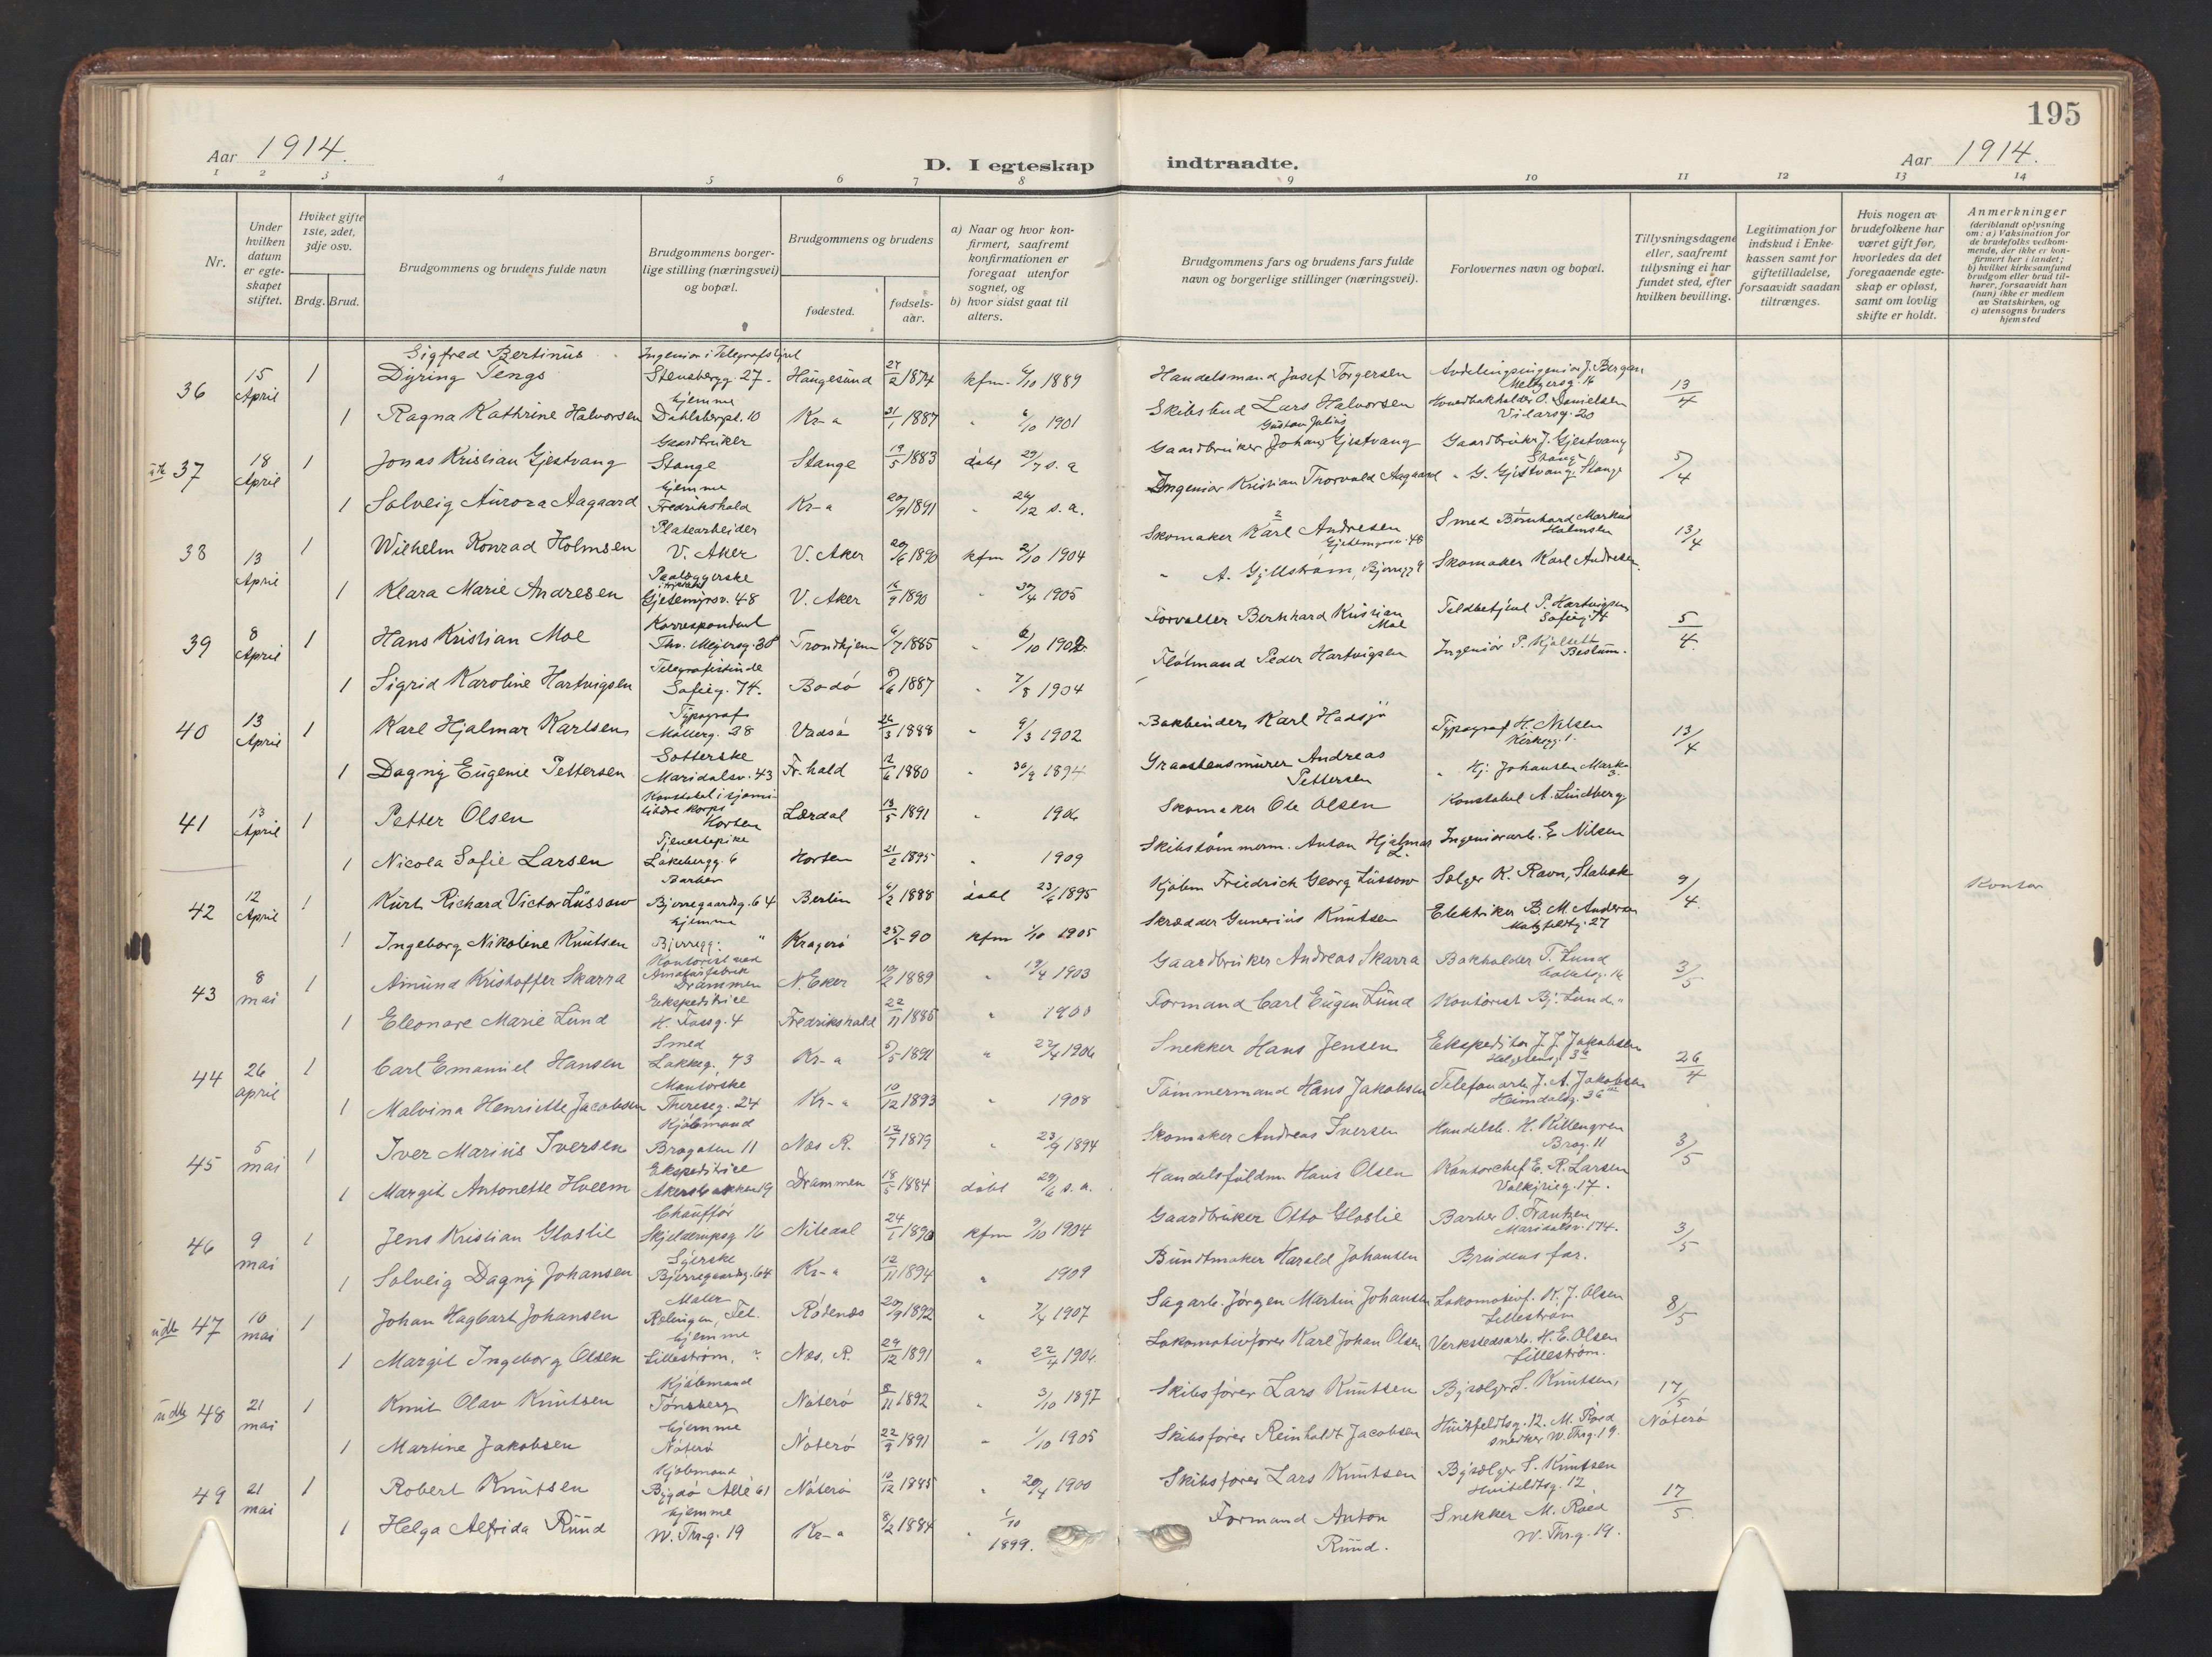 195
Aar 1914.
D. I egteskap indtraadte.
Aar 1914.
1 2 3 4 5 6 7 8 9 10 11 12 13 14
Nr.
Under hvilken datum er egteskapet stiftet.
Hviket gifte 1ste, 2det, 3dje osv.
Brdg. Brud.
Brudgommens og brudens fulde navn
Brudgommens borgerlige stilling (næringsvei) og bopæl.
Brudgommens og brudens
fødested.
fødselsaar.
a) Naar og hvor konfirmert, saafremt konfirmationen er foregaat utenfor sognet, og
b) hvor sidst gaat til alters.
Brudgommens fars og brudens fars fulde navn og borgerlige stillinger (næringsvei).
Forlovernes navn og bopæl.
Tillysningsdagene eller, saafremt tillysning ei har fundet sted, efter hvilken bevilling.
Legitimation for indskud i Enkekassen samt for giftetilladelse, forsaavidt saadan tiltrænges.
Hvis nogen av brudefolkene har været gift før, hvorledes da det foregaaende egteskap er opløst, samt om lovlig skifte er holdt.
Anmerkninger (deriblandt oplysning om: a) Vaksination for de brudefolks vedkommende, der ikke er konfirmert her i landet; b) hvilket kirkesamfund brudgom eller brud tilhører, forsaavidt han (hun) ikke er medlem av Statskirken, og c) utensogns bruders hjemsted
36 15 April 1 Sigfred Bertinus Dyring Tengs Ingeniør i Telegrafstyret Stensbergg. 27. Haugesund 27/2 1874 kfm. 6/10 1889 Handelsmand Josef Torgersen Avdelingsingeniør J. Bergan Meltzersg. 16 13/4
1 Ragna Kathrine Halvorsen hjemme Dahlsbergst. 10 Kr-a 31/1 1887 " 6/10 1901 Lars Halvorsen O. Danielsen Vidarsg. 20
37 18 April 1 Jonas Kristian Gjestvang Gaardbruker Stange Stange 19/5 1883 døbt 29/7 s. a Gaardbruker Johan Gustav Julius Gjestvang Gaardbruker J. Gjestvang Stange 5/4
1 Solveig Aurora Aagaard hjemme Fredrikshald Kr-a 20/9 1891 " 26/12 s. a. Ingeniør Kristian Thorvald Aagaard " G. Gjestvang, Stange
38 13 April 1 Wilhelm Konrad Holmsen Platearbeider V. Aker V. Aker 20/6 1890 kfm 2/10 1904 Skomaker Karl Andresen Gjetemyrsv. 48 Smed Bernhard Markus Holmsen 13/4
1 Klara Marie Andresen Gjetemyrsv. 48 V. Aker 16/9 1890 " 30/4 1905 " A. Gyllstrøm, Skomaker Karl Andresen.
39 8 April 1 Hans Kristian Moe Korrespondent Thv. Meyersg. 38 Trondhjem 6/7 1885 " 6/10 1902 Forvalter Bernhard Kristian Moe P. Hartvigsen Sofieg 74 5/4.
1 Sigrid Karoline Hartvigsen Telegrafistinde Sofieg. 74. Bodø 5/6 1887 " 7/8 1904 Peder Hartvigsen Ingeniør P. Kjølseth Bestum.
40 13 April 1 Karl Hjalmar Karlsen Typograf Møllerg. 38 Vadsø 26/3 1888 " 9/3 1902 Bokbinder Karl Hadsjø Typograf H. Nilsen Kirkegg. 1. 13/4
1 Dagny Eugenie Pettersen Maridalsv. 43 Fr. hald 12/6 1880 " 30/9 1894 Graastensmurer Andreas Pettersen " Hj. Johansen Markv. 3.
41 13 April 1 Petter Olsen Konstabel i sjømilitære korps Horten Lærdal 13/5 1891 " 1906 Skomaker Ole Olsen Konstabel A. Lindberg
1 Nicola Sofie Larsen Tjenestepike Lakkebergg. 6 Horten 21/2 1895 " 1909 Skibstømmerm. Anton Hjalmar L. Ingeniørarb. E. Nilsen
42 12 April 1 Kurt Richard Victor Lüssow Barber Bjerregaardsg. 64 Berlin 6/2 1888 døbt 23/6 1895 Kjøbm Friedrich Georg Lüssow Sælger K. Ravn, Stabæk 9/4. Kontor
1 Ingeborg Nikoline Knutsen hjemme Bjerregg. " Kragerø 25/5 90 kfm 1/10 1905 Skrædder Gunerius Knutsen Elektriker B. M. Andersen 27
43 8 mai 1 Amund Kristoffer Skarra Kontorist ved Drammen N. Eker 10/2 1889 " 19/4 1903 Gaardbruker Andreas Skarra Bokholder T. Lund 3/5
1 Eleonore Marie Lund Ekspeditrice H. Tassg. 4 Fredrikshald 22/11 1885 " 1900 Formand Carl Eugen Lund Kontorist Bj. Lund "
44 26 april 1 Carl Emanuel Hansen Smed Lakkeg. 73 Kr-a 5/5 1891 " 22/4 1906 Snekker Hans Jensen Ekspeditør J. J. Jakobsen 26/4
1 Malvina Henriette Jacobsen Thereseg. 24 Kr-a 10/12 1893 " 1908 Tømmermand Hans Jakobsen Telefonarb. J. A. Jakobsen Heimdalsg. 36
45 5 mai 1 Iver Marius Iversen Kjøbmand Brogaten 11 Nes R. 12/7 1879 " 23/9 1894 Skomaker Andreas Iversen Handelsb. H. Rillengren Brog. 11 3/5
1 Margit Antonette Hveem Ekspeditrice Akersbakken 19 Drammen 18/5 1884 døbt 29/6 s. a. Handelsfuldm. Hans Olsen Kontorchef E. R. Larsen Valkyrieg. 17.
46 9 mai 1 Jens Kristian Gloslie Chauffør Skjelderupsg 16 Nitedal 24/1 1890 kfm 9/10 1904 Gaardbruker Otto Gloslie Barber O. Frantzen Maridalsv. 174. 3/5
1 Solveig Dagny Johansen Syerske Bjerregaardsg. 64 Kr-a 12/11 1894 " 1909 Bundtmaker Harald Johansen Brudens far.
udb 47 10 mai 1 Johan Hagbart Johansen Maler Relingen, Fet. Rødenes 20/9 1892 " 7/4 1907 Sagarb. Jørgen Martin Johansen Lokomotivf. K. J. Olsen Lillestrøm 8/5
1 Margit Ingeborg Olsen hjemme Lillestrøm. Nes, R. 29/12 1891 " 22/4 1906 Lokomotivfører Karl Johan Olsen Verkstedsarb. H. E. Olsen Lillestrøm.
udb 48 21 mai 1 Knut Olav Knutsen Kjøbmand Tønsberg Nøterø 8/11 1892 " 3/10 1897 Skibsfører Lars Knutsen Bysælger S. Knutsen, Huitfeldtsg. 12. 17/5 Nøterø
1 Martine Jakobsen hjemme Nøterø Nøterø 22/9 1891 " 1/10 1905 Skibsfører Reinholdt Jacobsen M. Roed snedker W. Thsg. 19.
49 21 mai 1 Robert Knutsen Kjøbmand Bygdø Alle 61 Nøterø 10/12 1885 " 29/4 1900 Skibsfører Lars Knutsen Bysælger S. Knutsen Huitfeldtsg. 12. 17/5.
1 Helga Alfrida Ruud hjemme W. Thsg. 19 Kr-a 8/2 1884 " 1/10 1899. Formand Anton Ruud. Snekker M. Roed W. Thsg. 19.